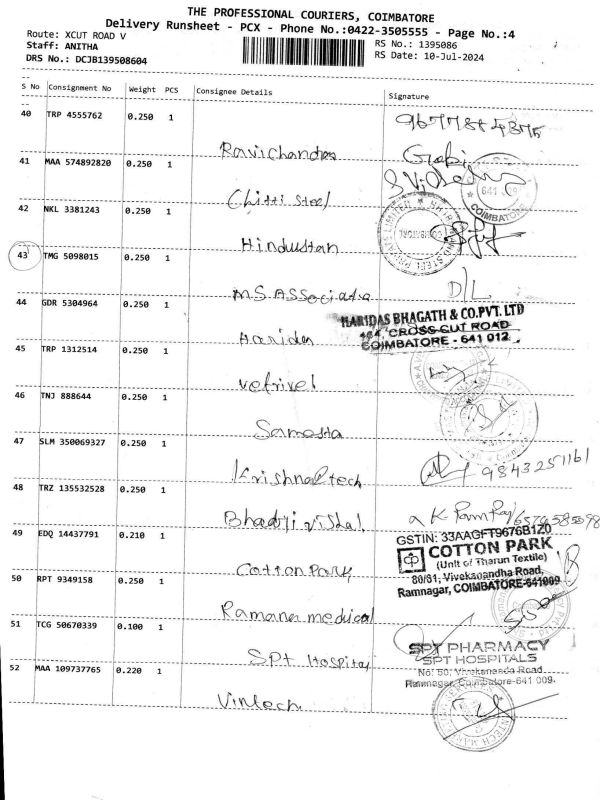 THE PROFESSIONAL COURIERS, COIMBATORE
Delivery Runsheet - PCX - Phone No.:0422-3505555 - Page No.:4
Route: XCUT ROAD V
Staff: ANITHA
DRS No.: DCJB139508604
RS No.: 1395086
RS Date: 10-Jul-2024
S No Consignment No Weight PCS Consignee Details Signature
40 TRP 4555762 0.250 1
Ravichandra
41 MAA 574892820 0.250 1
Chitti Steel
COIMBATORE
42 NKL 3381243 0.250 1
Hindustan
43 TMG 5098015 0.250 1
M.S. Associata D/L
44 GDR 5304964 0.250 1
Haridas
HARIDAS BHAGATH & CO.PVT. LTD
CROSS CUT ROAD
COIMBATORE - 641 012
45 TRP 1312514 0.250 1
vetrivel
46 TNJ 888644 0.250 1
Samosta
47 SLM 350069327 0.250 1
9843251161
48 TRZ 135532528 0.250 1
49 EDQ 14437791 0.210 1
Cotton Park
GSTIN: 33AAGFT9676B1Z0
COTTON PARK
(Unit of Tharun Textile)
80/81, Vivekanandha Road,
Ramnagar, COIMBATORE-641009
50 RPT 9349158 0.250 1
Ramana medical
51 TCG 50670339 0.100 1
S.P.t Hospital
SPT PHARMACY
SPT HOSPITALS
No: 50, Vivekananda Road
Ramnagar, Coimbatore-641 009.
52 MAA 109737765 0.220 1
Vintech